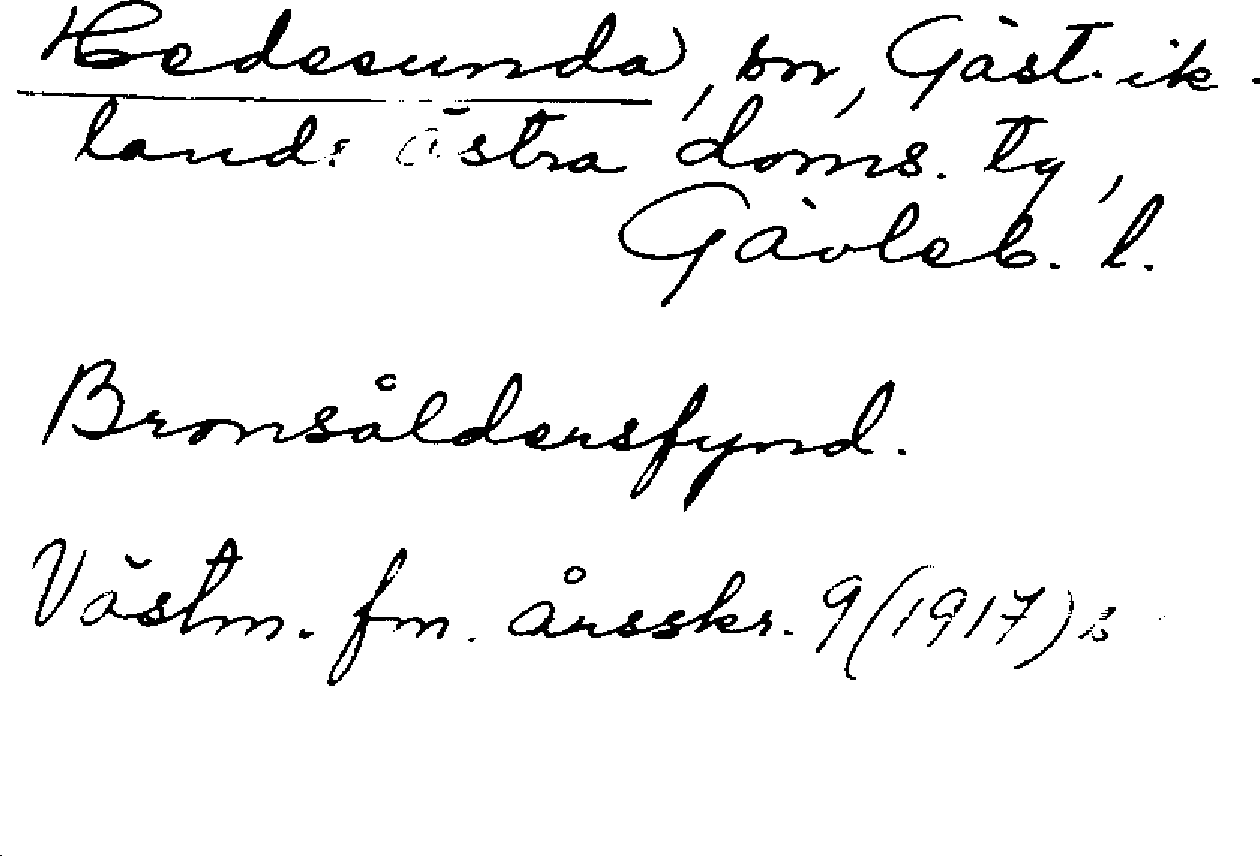 Hedesunda, sn, Gästrik-
lands östra doms. tg,
Gävleb. l.
Bronsåldersfynd.
Västm. fm. årsskr. 9 (1917) s